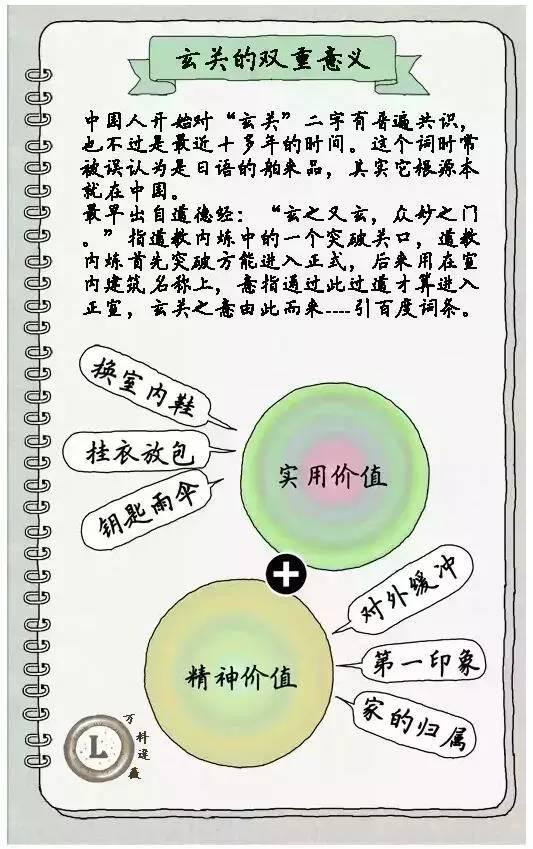 玄关的双重意义
中国人开始对“玄关”二字有普遍共识，
也不过是最近十多年的时间。这个词时常
被误认为是日语的舶来品，其实它根源本
就在中国。
最早出自道德经：“玄之又玄，众妙之门
。”指道教内炼中的一个突破关口，道教
内炼首先突破方能进入正式，后来用在室
内建筑名称上，意指通过此过道才算进入
正室，玄关之意由此而来----引百度词条。
换室内鞋
挂衣放包
钥匙雨伞
实用价值
对外缓冲
第一印象
家的归属
精神价值
L
万科逯薇